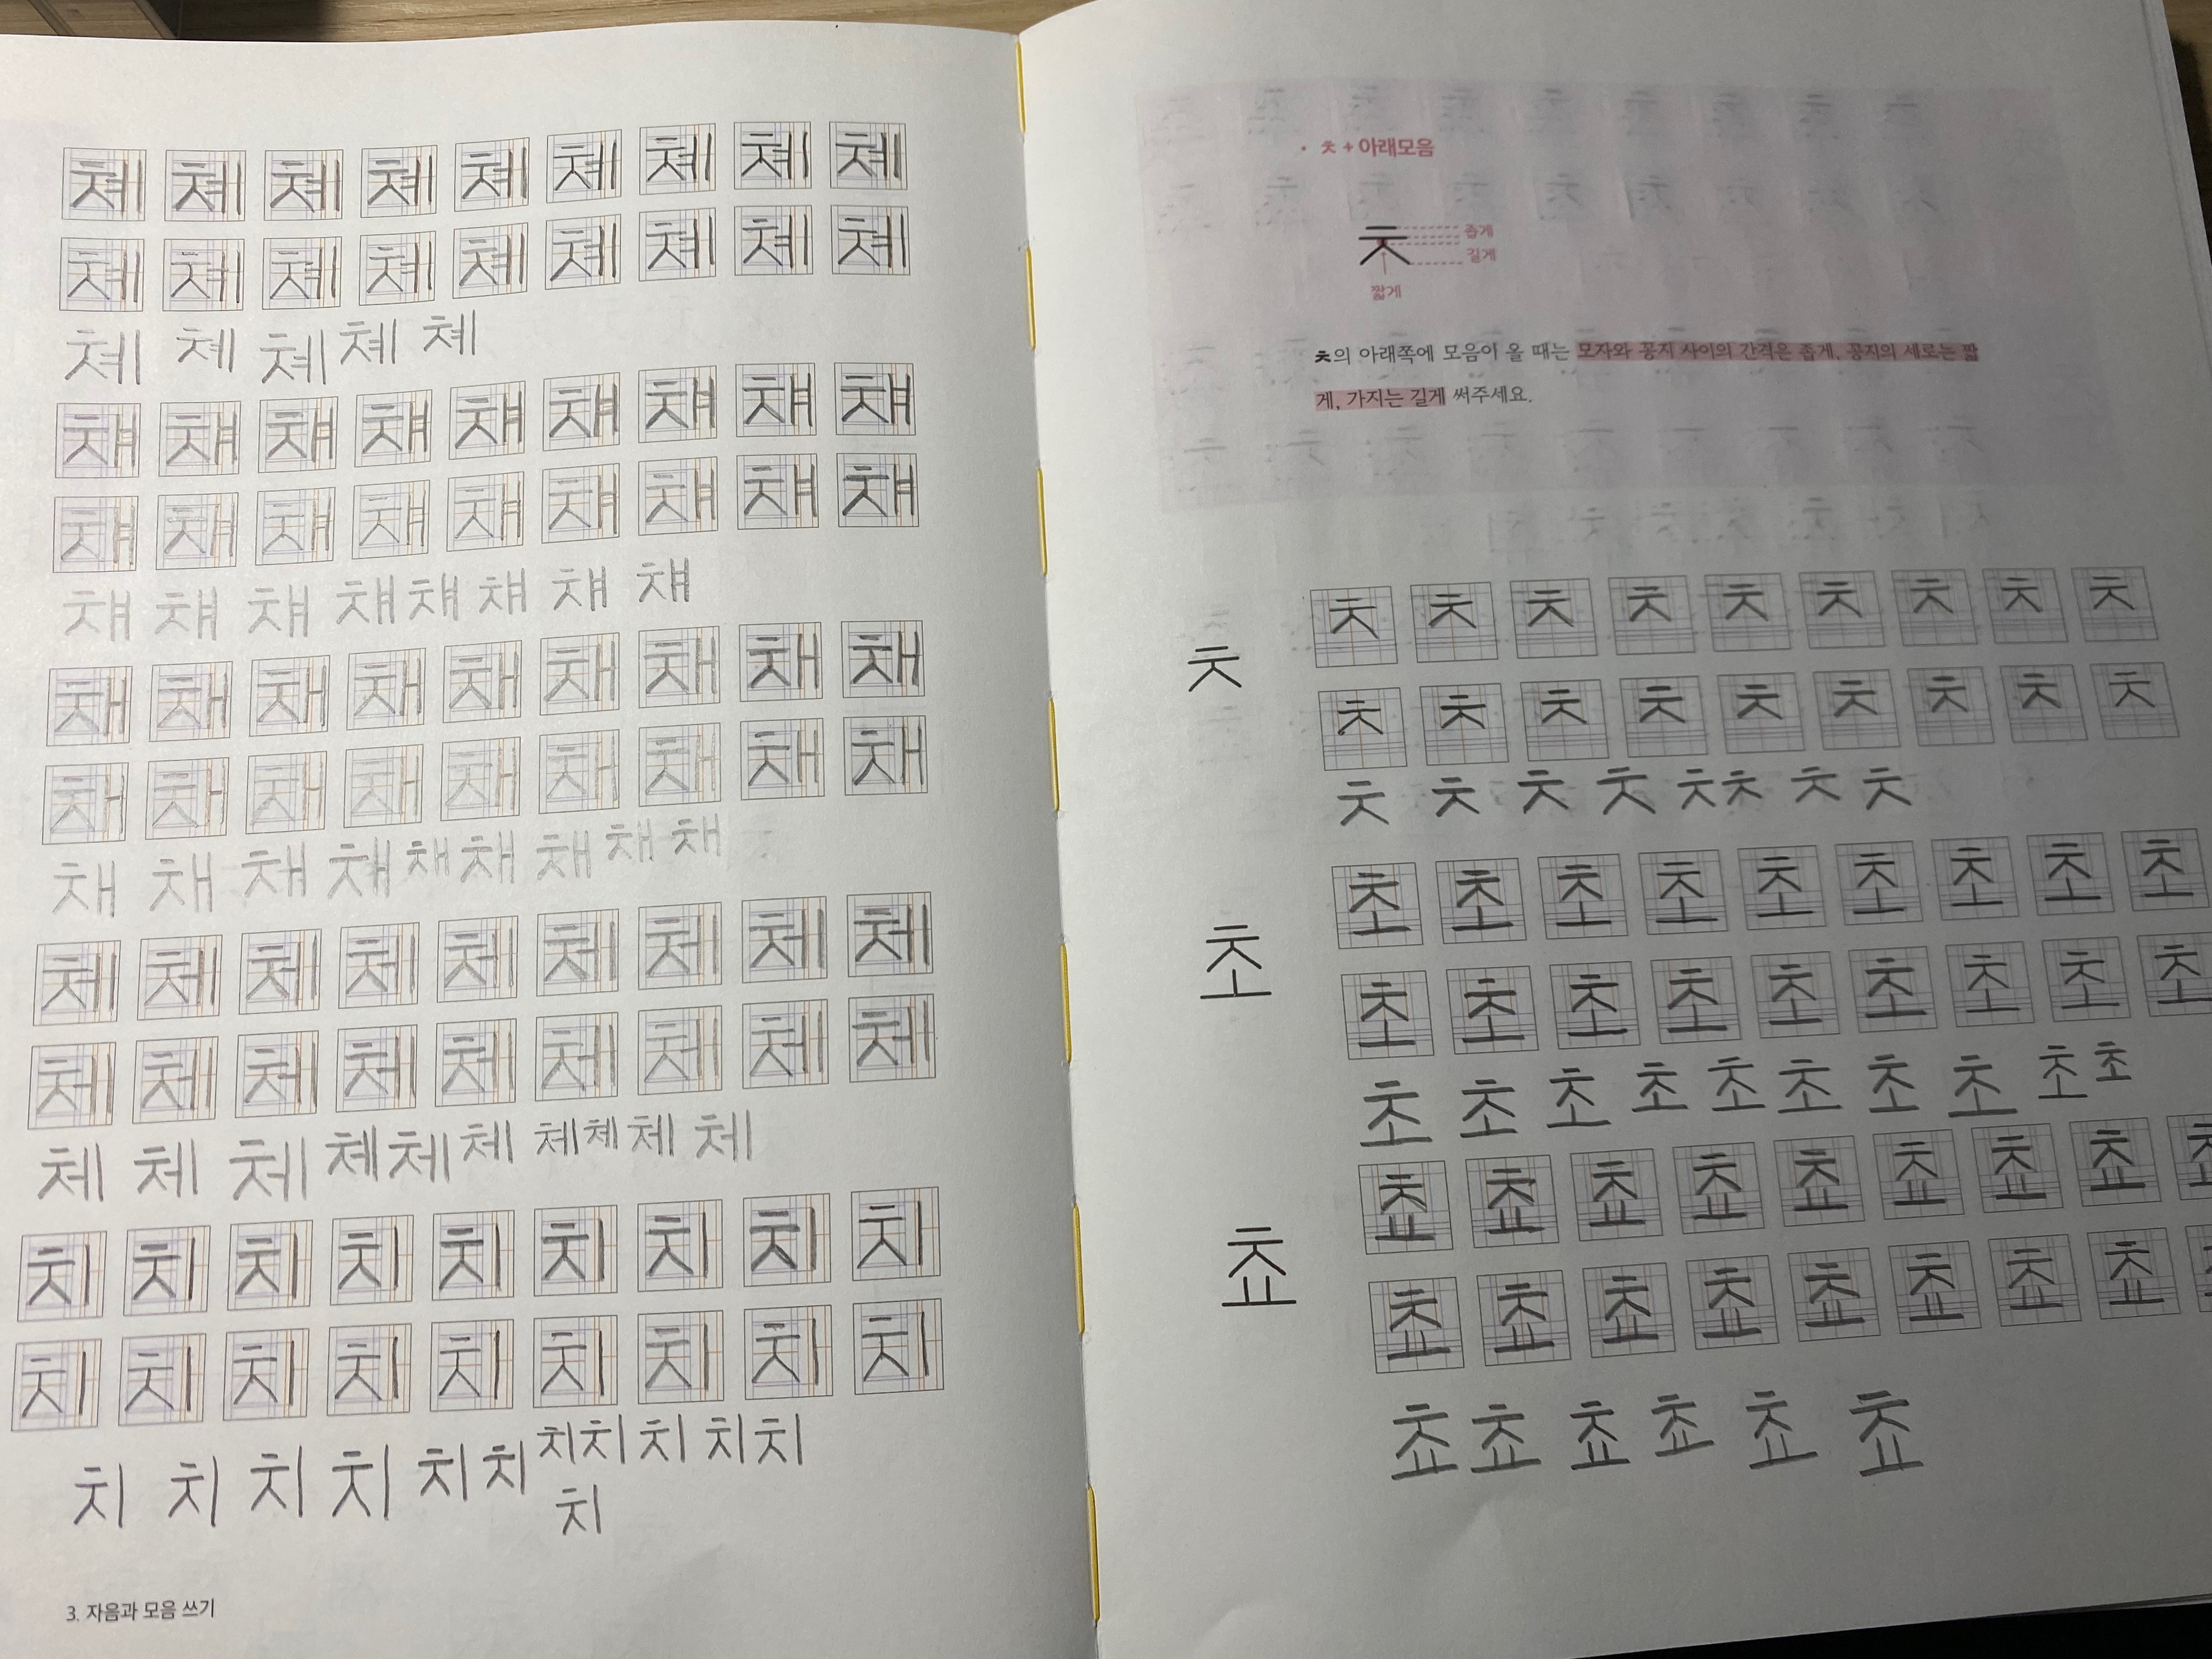 쳬 쳬 쳬 쳬 쳬 쳬 쳬 쳬 쳬
쳬 쳬 쳬 쳬 쳬 쳬 쳬 쳬 쳬
쳬 쳬 쳬 쳬 쳬
챼 챼 챼 챼 챼 챼 챼 챼 챼
챼 챼 챼 챼 챼 챼 챼 챼 챼
챼 챼 챼 챼 챼 챼 챼 챼
채 채 채 채 채 채 채 채 채
채 채 채 채 채 채 채 채 채
채 채 채 채 채 채 채 채 채
체 체 체 체 체 체 체 체 체
체 체 체 체 체 체 체 체 체
체 체 체 체 체 체 체 체 체 체
치 치 치 치 치 치 치 치 치
치 치 치 치 치 치 치 치 치
치 치 치 치 치 치 치 치 치 치 치
치
3. 자음과 모음 쓰기
• ㅊ + 아래모음
ㅊ 좁게
길게
짧게
ㅊ의 아래쪽에 모음이 올 때는 모자와 꽁지 사이의 간격은 좁게, 꽁지의 세로는 짧
게, 가지는 길게 써주세요.
ㅊ
ㅊ ㅊ ㅊ ㅊ ㅊ ㅊ ㅊ ㅊ ㅊ
ㅊ ㅊ ㅊ ㅊ ㅊ ㅊ ㅊ ㅊ ㅊ
ㅊ ㅊ ㅊ ㅊ ㅊ ㅊ ㅊ ㅊ
초
초 초 초 초 초 초 초 초 초
초 초 초 초 초 초 초 초 초
초 초 초 초 초 초 초 초 초 초
쵸
쵸 쵸 쵸 쵸 쵸 쵸 쵸 쵸
쵸 쵸 쵸 쵸 쵸 쵸 쵸 쵸
쵸 쵸 쵸 쵸 쵸 쵸